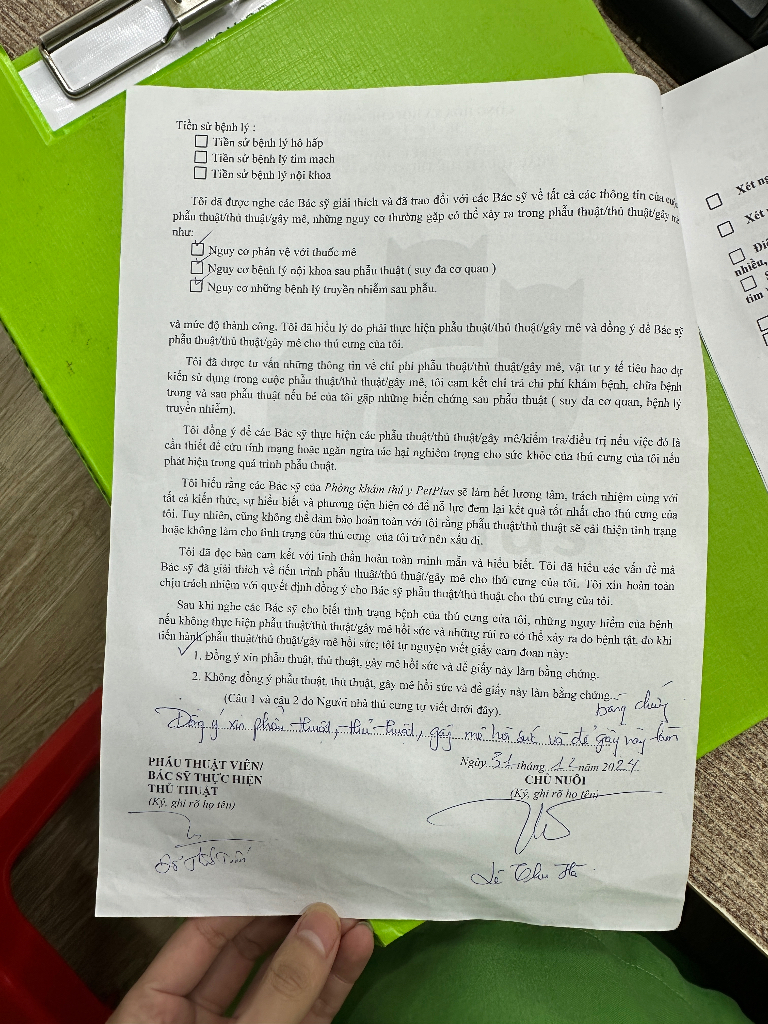 Tiền sử bệnh lý :
Tiền sử bệnh lý hô hấp
Tiền sử bệnh lý tim mạch
Tiền sử bệnh lý nội khoa
Tôi đã được nghe các Bác sỹ giải thích và đã trao đổi với các Bác sỹ về tất cả các thông tin của cuộc
phẫu thuật/thủ thuật/gây mê, những nguy cơ thường gặp có thể xảy ra trong phẫu thuật/thủ thuật/gây mê
như:
Nguy cơ phản vệ với thuốc mê
Nguy cơ bệnh lý nội khoa sau phẫu thuật ( suy đa cơ quan )
Nguy cơ những bệnh lý truyền nhiễm sau phẫu.
và mức độ thành công. Tôi đã hiểu lý do phải thực hiện phẫu thuật/thủ thuật/gây mê và đồng ý để Bác sỹ
phẫu thuật/thủ thuật/gây mê cho thú cưng của tôi.
Tôi đã được tư vấn những thông tin về chi phí phẫu thuật/thủ thuật/gây mê, vật tư y tế tiêu hao dự
kiến sử dụng trong cuộc phẫu thuật/thủ thuật/gây mê, tôi cam kết chi trả chi phí khám bệnh, chữa bệnh
trong và sau phẫu thuật nếu bé của tôi gặp những biến chứng sau phẫu thuật ( suy đa cơ quan, bệnh lý
truyền nhiễm).
Tôi đồng ý để các Bác sỹ thực hiện các phẫu thuật/thủ thuật/gây mê/kiểm tra/điều trị nếu việc đó là
cần thiết để cứu tính mạng hoặc ngăn ngừa tác hại nghiêm trọng cho sức khỏe của thú cưng của tôi nếu
phát hiện trong quá trình phẫu thuật.
Tôi hiểu rằng các Bác sỹ của Phòng khám thú y PetPlus sẽ làm hết lương tâm, trách nhiệm cùng với
tất cả kiến thức, sự hiểu biết và phương tiện hiện có để nỗ lực đem lại kết quả tốt nhất cho thú cưng của
tôi. Tuy nhiên, cũng không thể đảm bảo hoàn toàn với tôi rằng phẫu thuật/thủ thuật sẽ cải thiện tình trạng
hoặc không làm cho tình trạng của thú cưng của tôi trở nên xấu đi.
Tôi đã đọc bản cam kết với tinh thần hoàn toàn minh mẫn và hiểu biết. Tôi đã hiểu các vấn đề mà
Bác sỹ đã giải thích về tiến trình phẫu thuật/thủ thuật/gây mê cho thú cưng của tôi. Tôi xin hoàn toàn
chịu trách nhiệm với quyết định đồng ý cho Bác sỹ phẫu thuật/thủ thuật cho thú cưng của tôi.
Sau khi nghe các Bác sỹ cho biết tình trạng bệnh của thú cưng của tôi, những nguy hiểm của bệnh
nếu không thực hiện phẫu thuật/thủ thuật/gây mê hồi sức và những rủi ro có thể xảy ra do bệnh tật, do khi
tiến hành phẫu thuật/thủ thuật/gây mê hồi sức; tôi tự nguyện viết giấy cam đoan này:
1. Đồng ý xin phẫu thuật, thủ thuật, gây mê hồi sức và để giấy này làm bằng chứng.
2. Không đồng ý phẫu thuật, thủ thuật, gây mê hồi sức và để giấy này làm bằng chứng...
(Câu 1 và câu 2 do Người nhà thú cưng tự viết dưới đây).
bằng chứng
Đồng ý xin phẫu thuật, thủ thuật, gây mê hồi sức và để giấy này làm
Ngày 31 tháng 12 năm 2024
PHẪU THUẬT VIÊN/
BÁC SỸ THỰC HIỆN
THỦ THUẬT
(Ký, ghi rõ họ tên)
CHỦ NUÔI
(Ký, ghi rõ họ tên)
Lê Thu Hà
Xét
Xét
nhiều,
tim